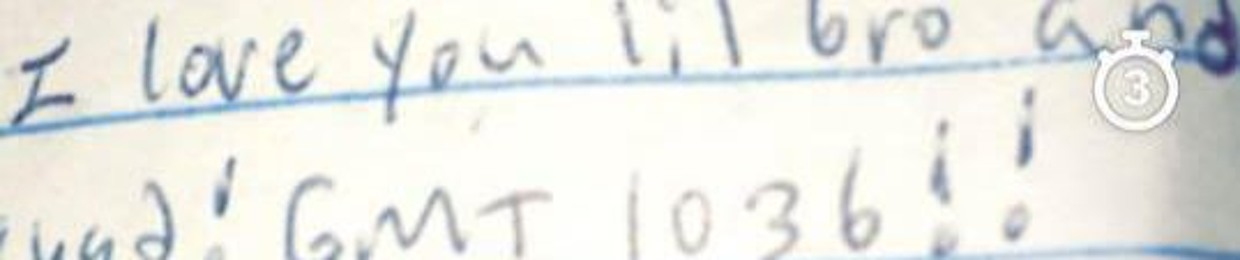 I love you lil bro and
GMT 1036!!
3